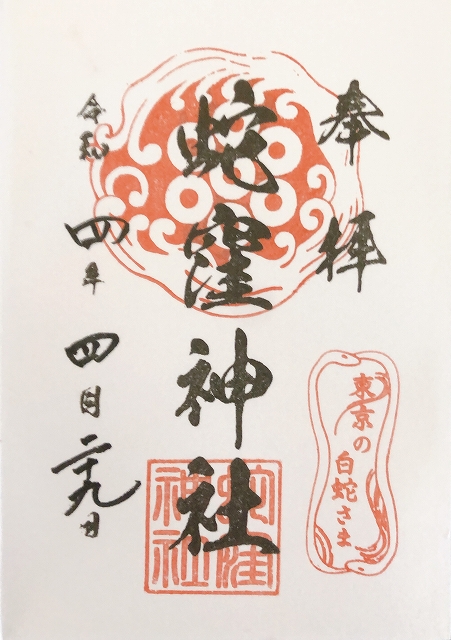 奉拝
蛇窪神社
蛇窪
神社
令和四年四月二十九日
東京の
白蛇さま